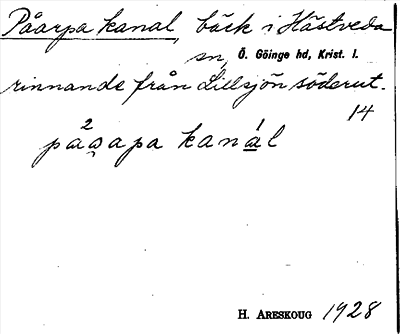 Påarpa kanal, bäck i Hästveda
sn, Ö. Göinge hd, Krist. l.
rinnande från Lillsjön söderut.
14
H. ARESKOUG 1928